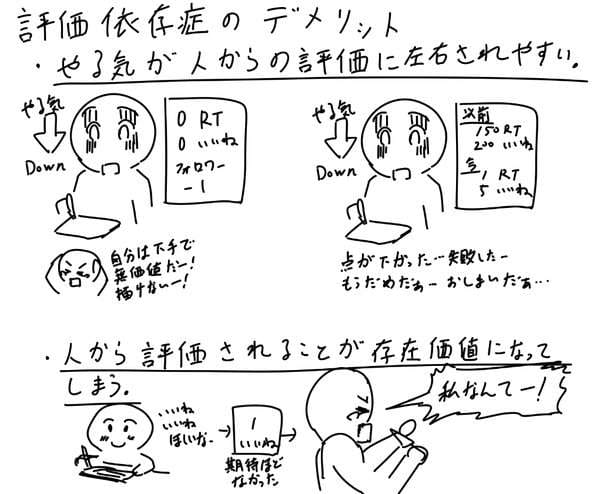 評価依存症のデメリット
・やる気が人からの評価に左右されやすい。
やる気
Down
0 RT
0 いいね
フォロワー
-1
自分は下手で
無価値だー!
描けないー!
やる気
Down
以前
150RT
200 いいね
今
1 RT
5 いいね
点が下がった…失敗したー
もうだめだぁー おしまいだぁ…
・人から評価されることが存在価値になって
しまう。
・いいね
いいね
ほしいなー
1
いいね
期待ほど
なかった
私なんてー!